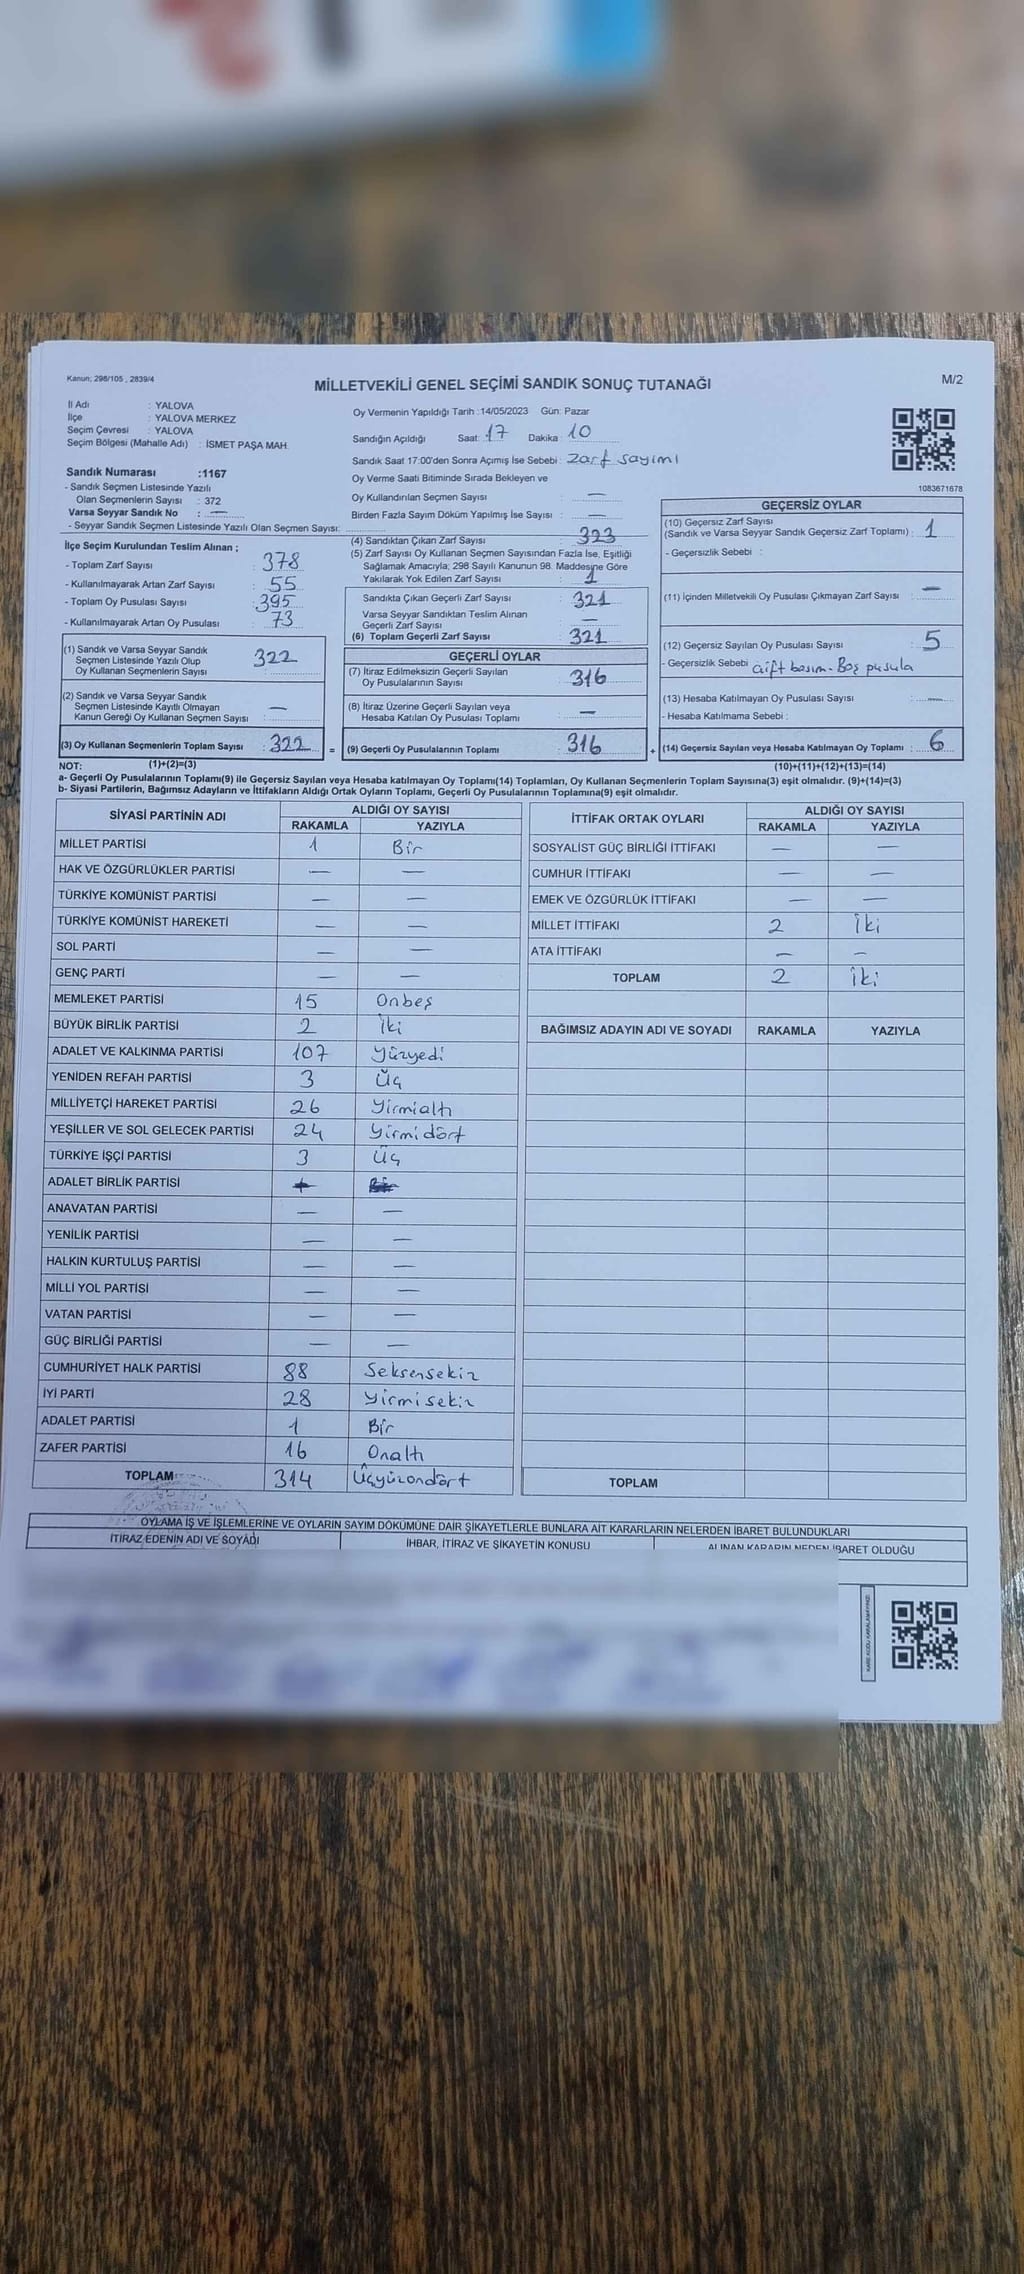 Kanun; 298/105 , 2839/4
MİLLETVEKİLİ GENEL SEÇİMİ SANDIK SONUÇ TUTANAĞI
M/2
İl Adı : YALOVA
İlçe : YALOVA MERKEZ
Seçim Çevresi : YALOVA
Seçim Bölgesi (Mahalle Adı) : İSMET PAŞA MAH.
Oy Vermenin Yapıldığı Tarih :14/05/2023 Gün: Pazar
Sandığın Açıldığı Saat: 17 Dakika: 10
Sandık Saat 17:00'den Sonra Açımış İse Sebebi: Zarf sayımı
Oy Verme Saati Bitiminde Sırada Bekleyen ve
Oy Kullandırılan Seçmen Sayısı : —
Birden Fazla Sayım Döküm Yapılmış İse Sayısı : —
1083671678
Sandık Numarası :1167
- Sandık Seçmen Listesinde Yazılı
Olan Seçmenlerin Sayısı : 372
Varsa Seyyar Sandık No : —
- Seyyar Sandık Seçmen Listesinde Yazılı Olan Seçmen Sayısı:
İlçe Seçim Kurulundan Teslim Alınan ;
- Toplam Zarf Sayısı : 378
- Kullanılmayarak Artan Zarf Sayısı : 55
- Toplam Oy Pusulası Sayısı : 395
- Kullanılmayarak Artan Oy Pusulası : 73
(1) Sandık ve Varsa Seyyar Sandık
Seçmen Listesinde Yazılı Olup
Oy Kullanan Seçmenlerin Sayısı : 322
(2) Sandık ve Varsa Seyyar Sandık
Seçmen Listesinde Kayıtlı Olmayan
Kanun Gereği Oy Kullanan Seçmen Sayısı : —
(3) Oy Kullanan Seçmenlerin Toplam Sayısı : 322 =
(4) Sandıktan Çıkan Zarf Sayısı : 323
(5) Zarf Sayısı Oy Kullanan Seçmen Sayısından Fazla İse, Eşitliği
Sağlamak Amacıyla; 298 Sayılı Kanunun 98. Maddesine Göre
Yakılarak Yok Edilen Zarf Sayısı : 1
Sandıkta Çıkan Geçerli Zarf Sayısı : 321
Varsa Seyyar Sandıktan Teslim Alınan
Geçerli Zarf Sayısı : —
(6) Toplam Geçerli Zarf Sayısı : 321
GEÇERLİ OYLAR
(7) İtiraz Edilmeksizin Geçerli Sayılan
Oy Pusulalarının Sayısı : 316
(8) İtiraz Üzerine Geçerli Sayılan veya
Hesaba Katılan Oy Pusulası Toplamı : —
(9) Geçerli Oy Pusulalarının Toplamı : 316 +
GEÇERSİZ OYLAR
(10) Geçersiz Zarf Sayısı
(Sandık ve Varsa Seyyar Sandık Geçersiz Zarf Toplamı) : 1
- Geçersizlik Sebebi :
(11) İçinden Milletvekili Oy Pusulası Çıkmayan Zarf Sayısı : —
(12) Geçersiz Sayılan Oy Pusulası Sayısı : 5
- Geçersizlik Sebebi : Çift basım - Boş pusula
(13) Hesaba Katılmayan Oy Pusulası Sayısı : —
- Hesaba Katılmama Sebebi :
(14) Geçersiz Sayılan veya Hesaba Katılmayan Oy Toplamı : 6
NOT: (1)+(2)=(3) (10)+(11)+(12)+(13)=(14)
a- Geçerli Oy Pusulalarının Toplamı(9) ile Geçersiz Sayılan veya Hesaba katılmayan Oy Toplamı(14) Toplamları, Oy Kullanan Seçmenlerin Toplam Sayısına(3) eşit olmalıdır. (9)+(14)=(3)
b- Siyasi Partilerin, Bağımsız Adayların ve İttifakların Aldığı Ortak Oyların Toplamı, Geçerli Oy Pusulalarının Toplamına(9) eşit olmalıdır.
SİYASİ PARTİNİN ADI ALDIĞI OY SAYISI
RAKAMLA YAZIYLA
MİLLET PARTİSİ 1 Bir
HAK VE ÖZGÜRLÜKLER PARTİSİ — —
TÜRKİYE KOMÜNİST PARTİSİ — —
TÜRKİYE KOMÜNİST HAREKETİ — —
SOL PARTİ — —
GENÇ PARTİ — —
MEMLEKET PARTİSİ 15 Onbeş
BÜYÜK BİRLİK PARTİSİ 2 İki
ADALET VE KALKINMA PARTİSİ 107 Yüzyedi
YENİDEN REFAH PARTİSİ 3 Üç
MİLLİYETÇİ HAREKET PARTİSİ 26 Yirmialtı
YEŞİLLER VE SOL GELECEK PARTİSİ 24 Yirmidört
TÜRKİYE İŞÇİ PARTİSİ 3 Üç
ADALET BİRLİK PARTİSİ
ANAVATAN PARTİSİ — —
YENİLİK PARTİSİ — —
HALKIN KURTULUŞ PARTİSİ — —
MİLLİ YOL PARTİSİ — —
VATAN PARTİSİ — —
GÜÇ BİRLİĞİ PARTİSİ — —
CUMHURİYET HALK PARTİSİ 88 Seksensekiz
İYİ PARTİ 28 Yirmisekiz
ADALET PARTİSİ 1 Bir
ZAFER PARTİSİ 16 Onaltı
TOPLAM 314 Üçyüzondört
İTTİFAK ORTAK OYLARI ALDIĞI OY SAYISI
RAKAMLA YAZIYLA
SOSYALİST GÜÇ BİRLİĞİ İTTİFAKI — —
CUMHUR İTTİFAKI — —
EMEK VE ÖZGÜRLÜK İTTİFAKI — —
MİLLET İTTİFAKI 2 İki
ATA İTTİFAKI — —
TOPLAM 2 İki
BAĞIMSIZ ADAYIN ADI VE SOYADI RAKAMLA YAZIYLA
TOPLAM
OYLAMA İŞ VE İŞLEMLERİNE VE OYLARIN SAYIM DÖKÜMÜNE DAİR ŞİKAYETLERLE BUNLARA AİT KARARLARIN NELERDEN İBARET BULUNDUKLARI
İTİRAZ EDENİN ADI VE SOYADI İHBAR, İTİRAZ VE ŞİKAYETİN KONUSU ALINAN KARARIN NEDEN İBARET OLDUĞU